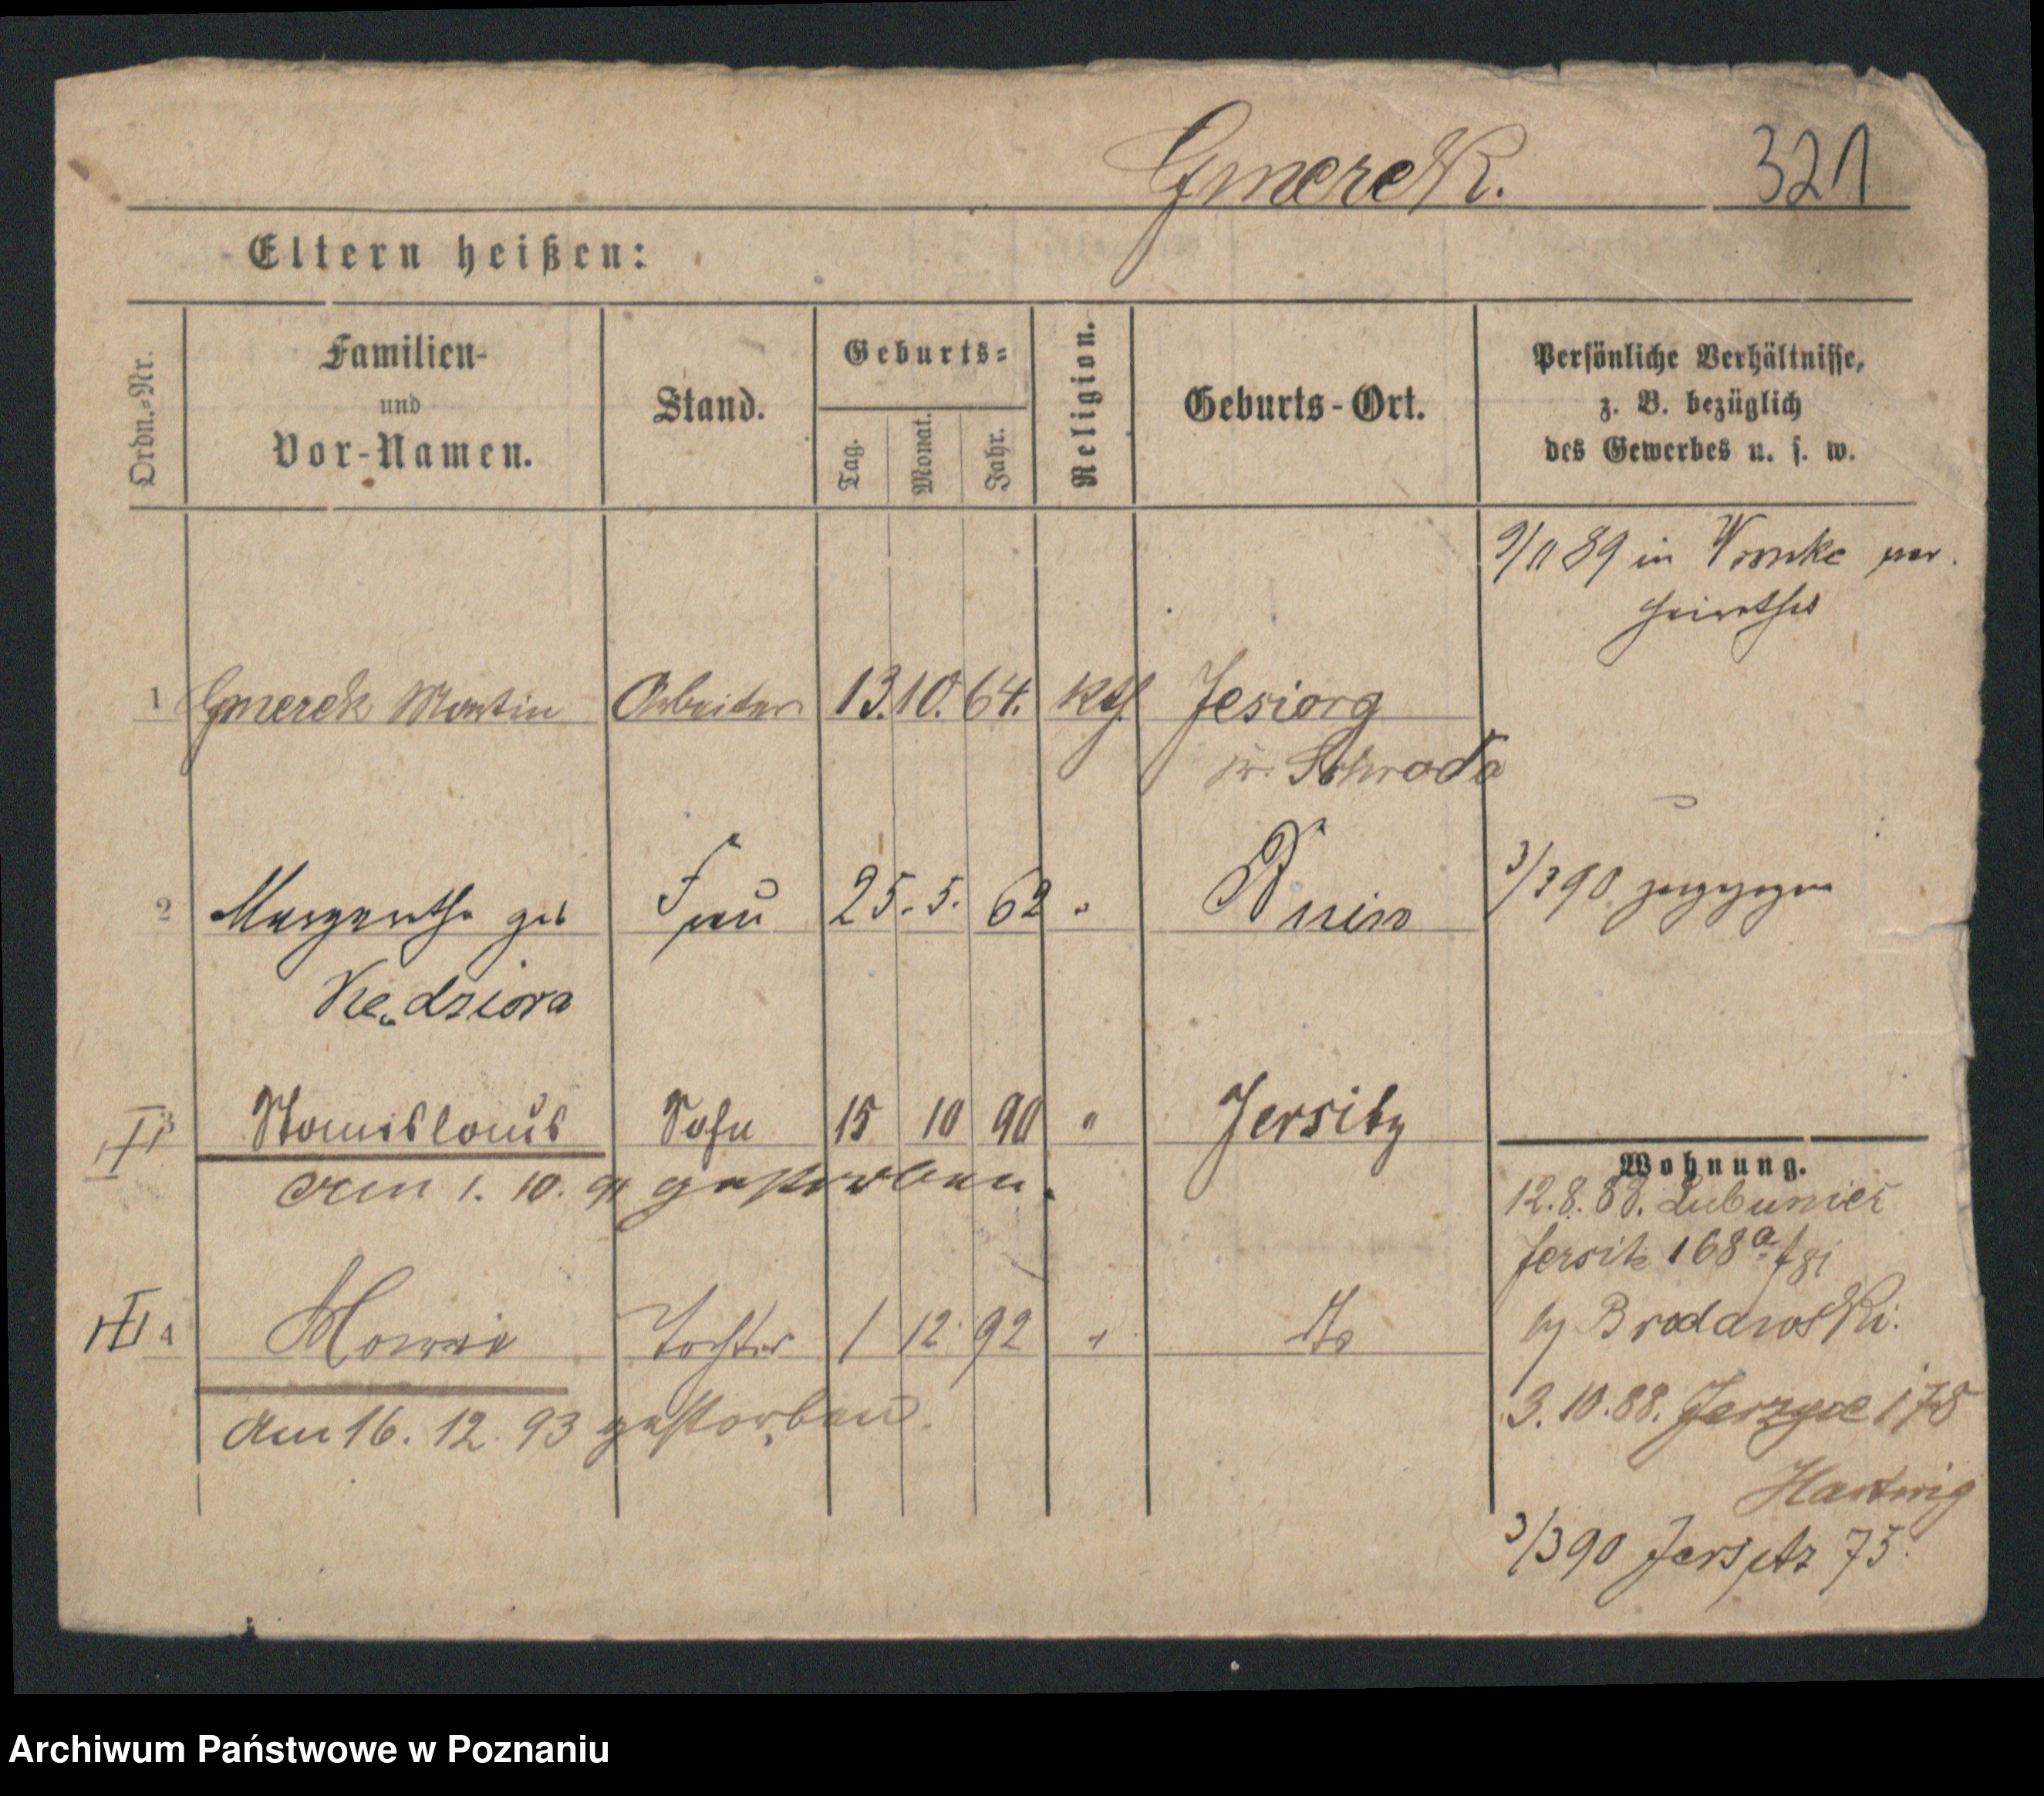 Gmerek. 321
Eltern heißen:
Ordn.-Nr.
Familien-
und
Vor-Namen.
Stand.
Geburts-
Tag.
Monat.
Jahr.
Religion.
Geburts-Ort.
Persönliche Verhältnisse,
z. B. bezüglich
des Gewerbes u. s. w.
9/11 89 in Wronke ver.
heirathet
1 Gmerek Martin Arbeiter 13. 10. 64. kth. Jesiorg
Kr. Schroda
2 Margaretha geb Frau 25. 5. 62 " Pnin 3/3 90 zugezogen
Kędziora
III 3 Stanislaus Sohn 15 10 90 " Jersitz
am 1. 10. 91 gestorben.
III 4 Marie Tochter 1 12 92 " dto
am 16. 12. 93 gestorben.
Wohnung.
12. 8. 88.
Jersitz 168a
by Brodawski.
3. 10. 88. Jerzyce 178
Hartwig
3/3 90 Jersitz 75.
Archiwum Państwowe w Poznaniu